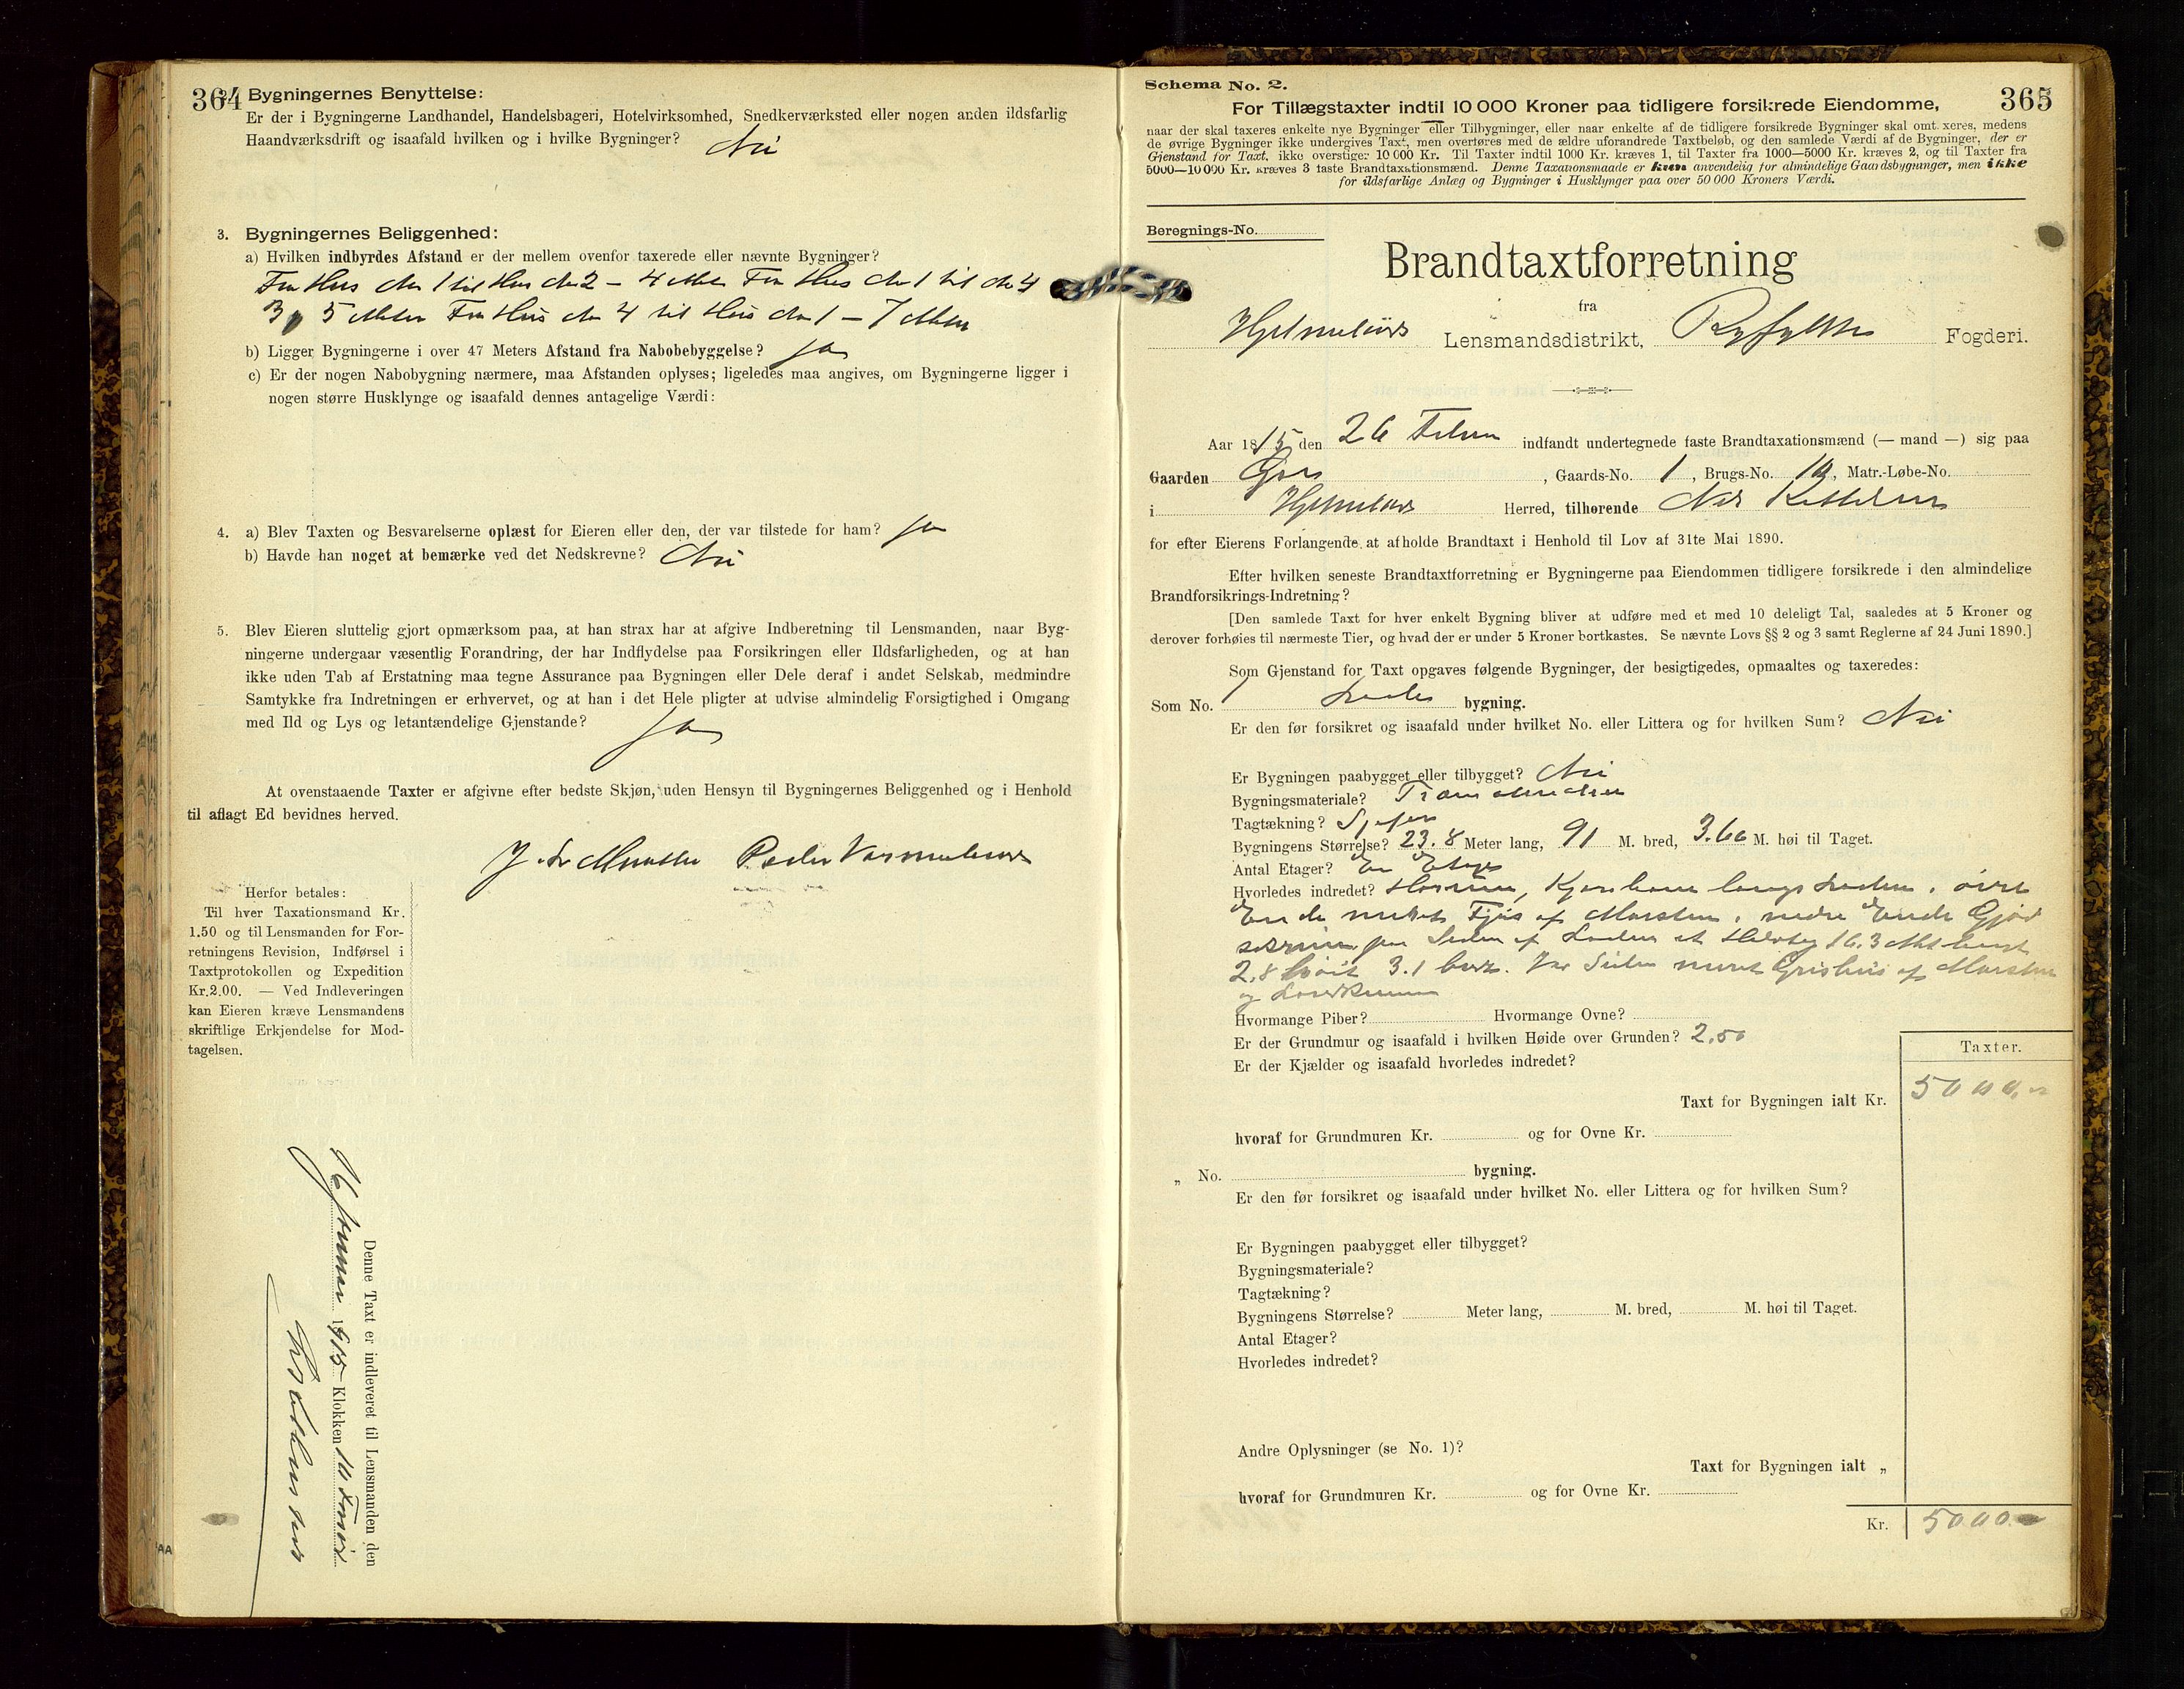 364
2. Bygningernes Benyttelse:
Er der i Bygningerne Landhandel, Handelsbageri, Hotelvirksomhed, Snedkerværksted eller nogen anden ildsfarlig
Haandværksdrift og isaafald hvilken og i hvilke Bygninger? Nei
3. Bygningernes Beliggenhed:
a) Hvilken indbyrdes Afstand er der mellem ovenfor taxerede eller nævnte Bygninger?
Fra Hus No 1 til Hus No 2 - 4 Meter Fra Hus No 1 til No 4
5 Meter Fra Hus No 4 til Hus No 1 - 7 Meter
b) Ligger Bygningerne i over 47 Meters Afstand fra Nabobebyggelse? Ja
c) Er der nogen Nabobygning nærmere, maa Afstanden oplyses; ligeledes maa angives, om Bygningerne ligger i
nogen større Husklynge og isaafald dennes antagelige Værdi:
4. a) Blev Taxten og Besvarelserne oplæst for Eieren eller den, der var tilstede for ham? Ja
b) Havde han noget at bemærke ved det Nedskrevne? Nei
5. Blev Eieren sluttelig gjort opmærksom paa, at han strax har at afgive Indberetning til Lensmanden, naar Byg-
ningerne undergaar væsentlig Forandring, der har Indflydelse paa Forsikringen eller Ildsfarligheden, og at han
ikke uden Tab af Erstatning maa tegne Assurance paa Bygningen eller Dele deraf i andet Selskab, medmindre
Samtykke fra Indretningen er erhvervet, og at han i det Hele pligter at udvise almindelig Forsigtighed i Omgang
med Ild og Lys og letantændelige Gjenstande? Ja
At ovenstaaende Taxter er afgivne efter bedste Skjøn, uden Hensyn til Bygningernes Beliggenhed og i Henhold
til aflagt Ed bevidnes herved.
Peder
Herfor betales:
Til hver Taxationsmand Kr.
1.50 og til Lensmanden for For-
retningens Revision, Indførsel i
Taxtprotokollen og Expedition
Kr. 2.00. — Ved Indleveringen
kan Eieren kræve Lensmandens
skriftlige Erkjendelse for Mod-
tagelsen.
Denne Taxt er indleveret til Lensmanden den
1915 Klokken 10 Form
365
Schema No. 2.
For Tillægstaxter indtil 10 000 Kroner paa tidligere forsikrede Eiendomme,
naar der skal taxeres enkelte nye Bygninger eller Tilbygninger, eller naar enkelte af de tidligere forsikrede Bygninger skal omtaxeres, medens
de øvrige Bygninger ikke undergives Taxt, men overføres med de ældre uforandrede Taxtbeløb, og den samlede Værdi af de Bygninger, der er
Gjenstand for Taxt, ikke overstiger 10 000 Kr. Til Taxter indtil 1000 Kr. kræves 1, til Taxter fra 1000—5000 Kr. kræves 2, og til Taxter fra
5000—10 000 Kr. kræves 3 faste Brandtaxationsmænd. Denne Taxationsmaade er kun anvendelig for almindelige Gaardsbygninger, men ikke
for ildsfarlige Anlæg og Bygninger i Husklynger paa over 50 000 Kroners Værdi.
Beregnings-No.
Brandtaxtforretning
fra
Hjelmelands Lensmandsdistrikt, Ryfylke Fogderi.
Aar 1815 den 26 Febru indfandt undertegnede faste Brandtaxationsmænd (— mand —) sig paa
Gaarden , Gaards-No. 1, Brugs-No. 10, Matr.-Løbe-No.
i Hjelmelands Herred, tilhørende
for efter Eierens Forlangende at afholde Brandtaxt i Henhold til Lov af 31te Mai 1890.
Efter hvilken seneste Brandtaxtforretning er Bygningerne paa Eiendommen tidligere forsikrede i den almindelige
Brandforsikrings-Indretning?
[Den samlede Taxt for hver enkelt Bygning bliver at udføre med et med 10 deleligt Tal, saaledes at 5 Kroner og
derover forhøies til nærmeste Tier, og hvad der er under 5 Kroner bortkastes. Se nævnte Lovs §§ 2 og 3 samt Reglerne af 24 Juni 1890.]
Som Gjenstand for Taxt opgaves følgende Bygninger, der besigtigedes, opmaaltes og taxeredes:
Som No. 1 Lade bygning.
Er den før forsikret og isaafald under hvilket No. eller Littera og for hvilken Sum? Nei
Er Bygningen paabygget eller tilbygget? Nei
Bygningsmateriale?
Tagtækning?
Bygningens Størrelse? 23.8 Meter lang, 91 M. bred, 3.60 M. høi til Taget.
Antal Etager? En Etage
Hvorledes indredet? Kjørebane langs Laden, øvre
Ende muret Fjøs af Mursten, nedre Ende Gjød
af Laden et 16.3 Met langt
2.8 høit 3.1 bred. Siden muret Grishus af Mursten
og
Hvormange Piber? Hvormange Ovne?
Er der Grundmur og isaafald i hvilken Høide over Grunden? 2.50
Er der Kjælder og isaafald hvorledes indredet?
Taxter.
Taxt for Bygningen ialt Kr. 5000.
hvoraf for Grundmuren Kr. og for Ovne Kr.
„ No. bygning.
Er den før forsikret og isaafald under hvilket No. eller Littera og for hvilken Sum?
Er Bygningen paabygget eller tilbygget?
Bygningsmateriale?
Tagtækning?
Bygningens Størrelse? Meter lang, M. bred, M. høi til Taget.
Antal Etager?
Hvorledes indredet?
Andre Oplysninger (se No. 1)?
Taxt for Bygningen ialt „
hvoraf for Grundmuren Kr. og for Ovne Kr.
Kr. 5000